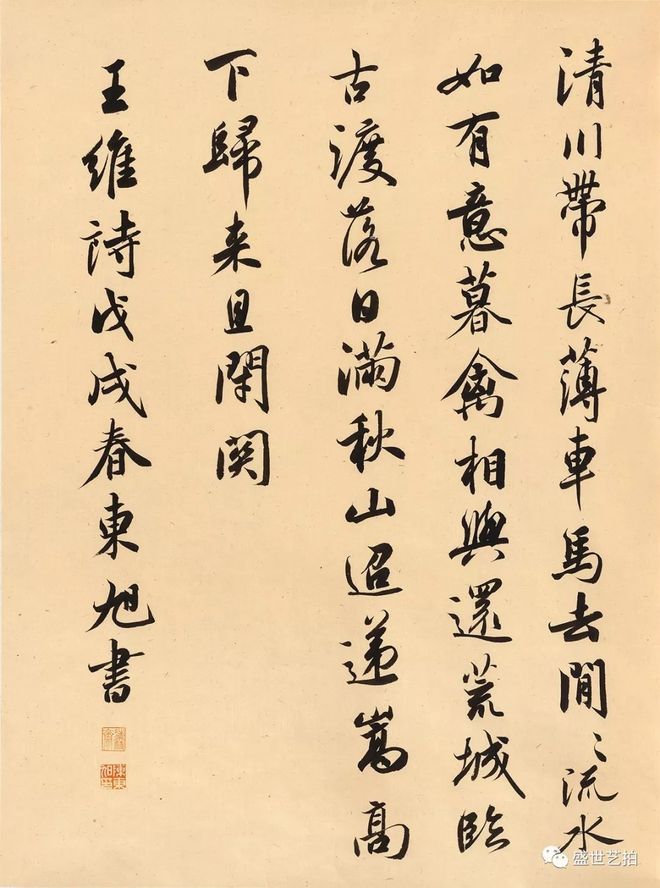 清川帶長薄車馬去閒〻流水
如有意暮禽相與還荒城臨
古渡落日滿秋山迢遞嵩高
下歸来且閉関
王維詩戊戌春東旭書
盛世艺拍